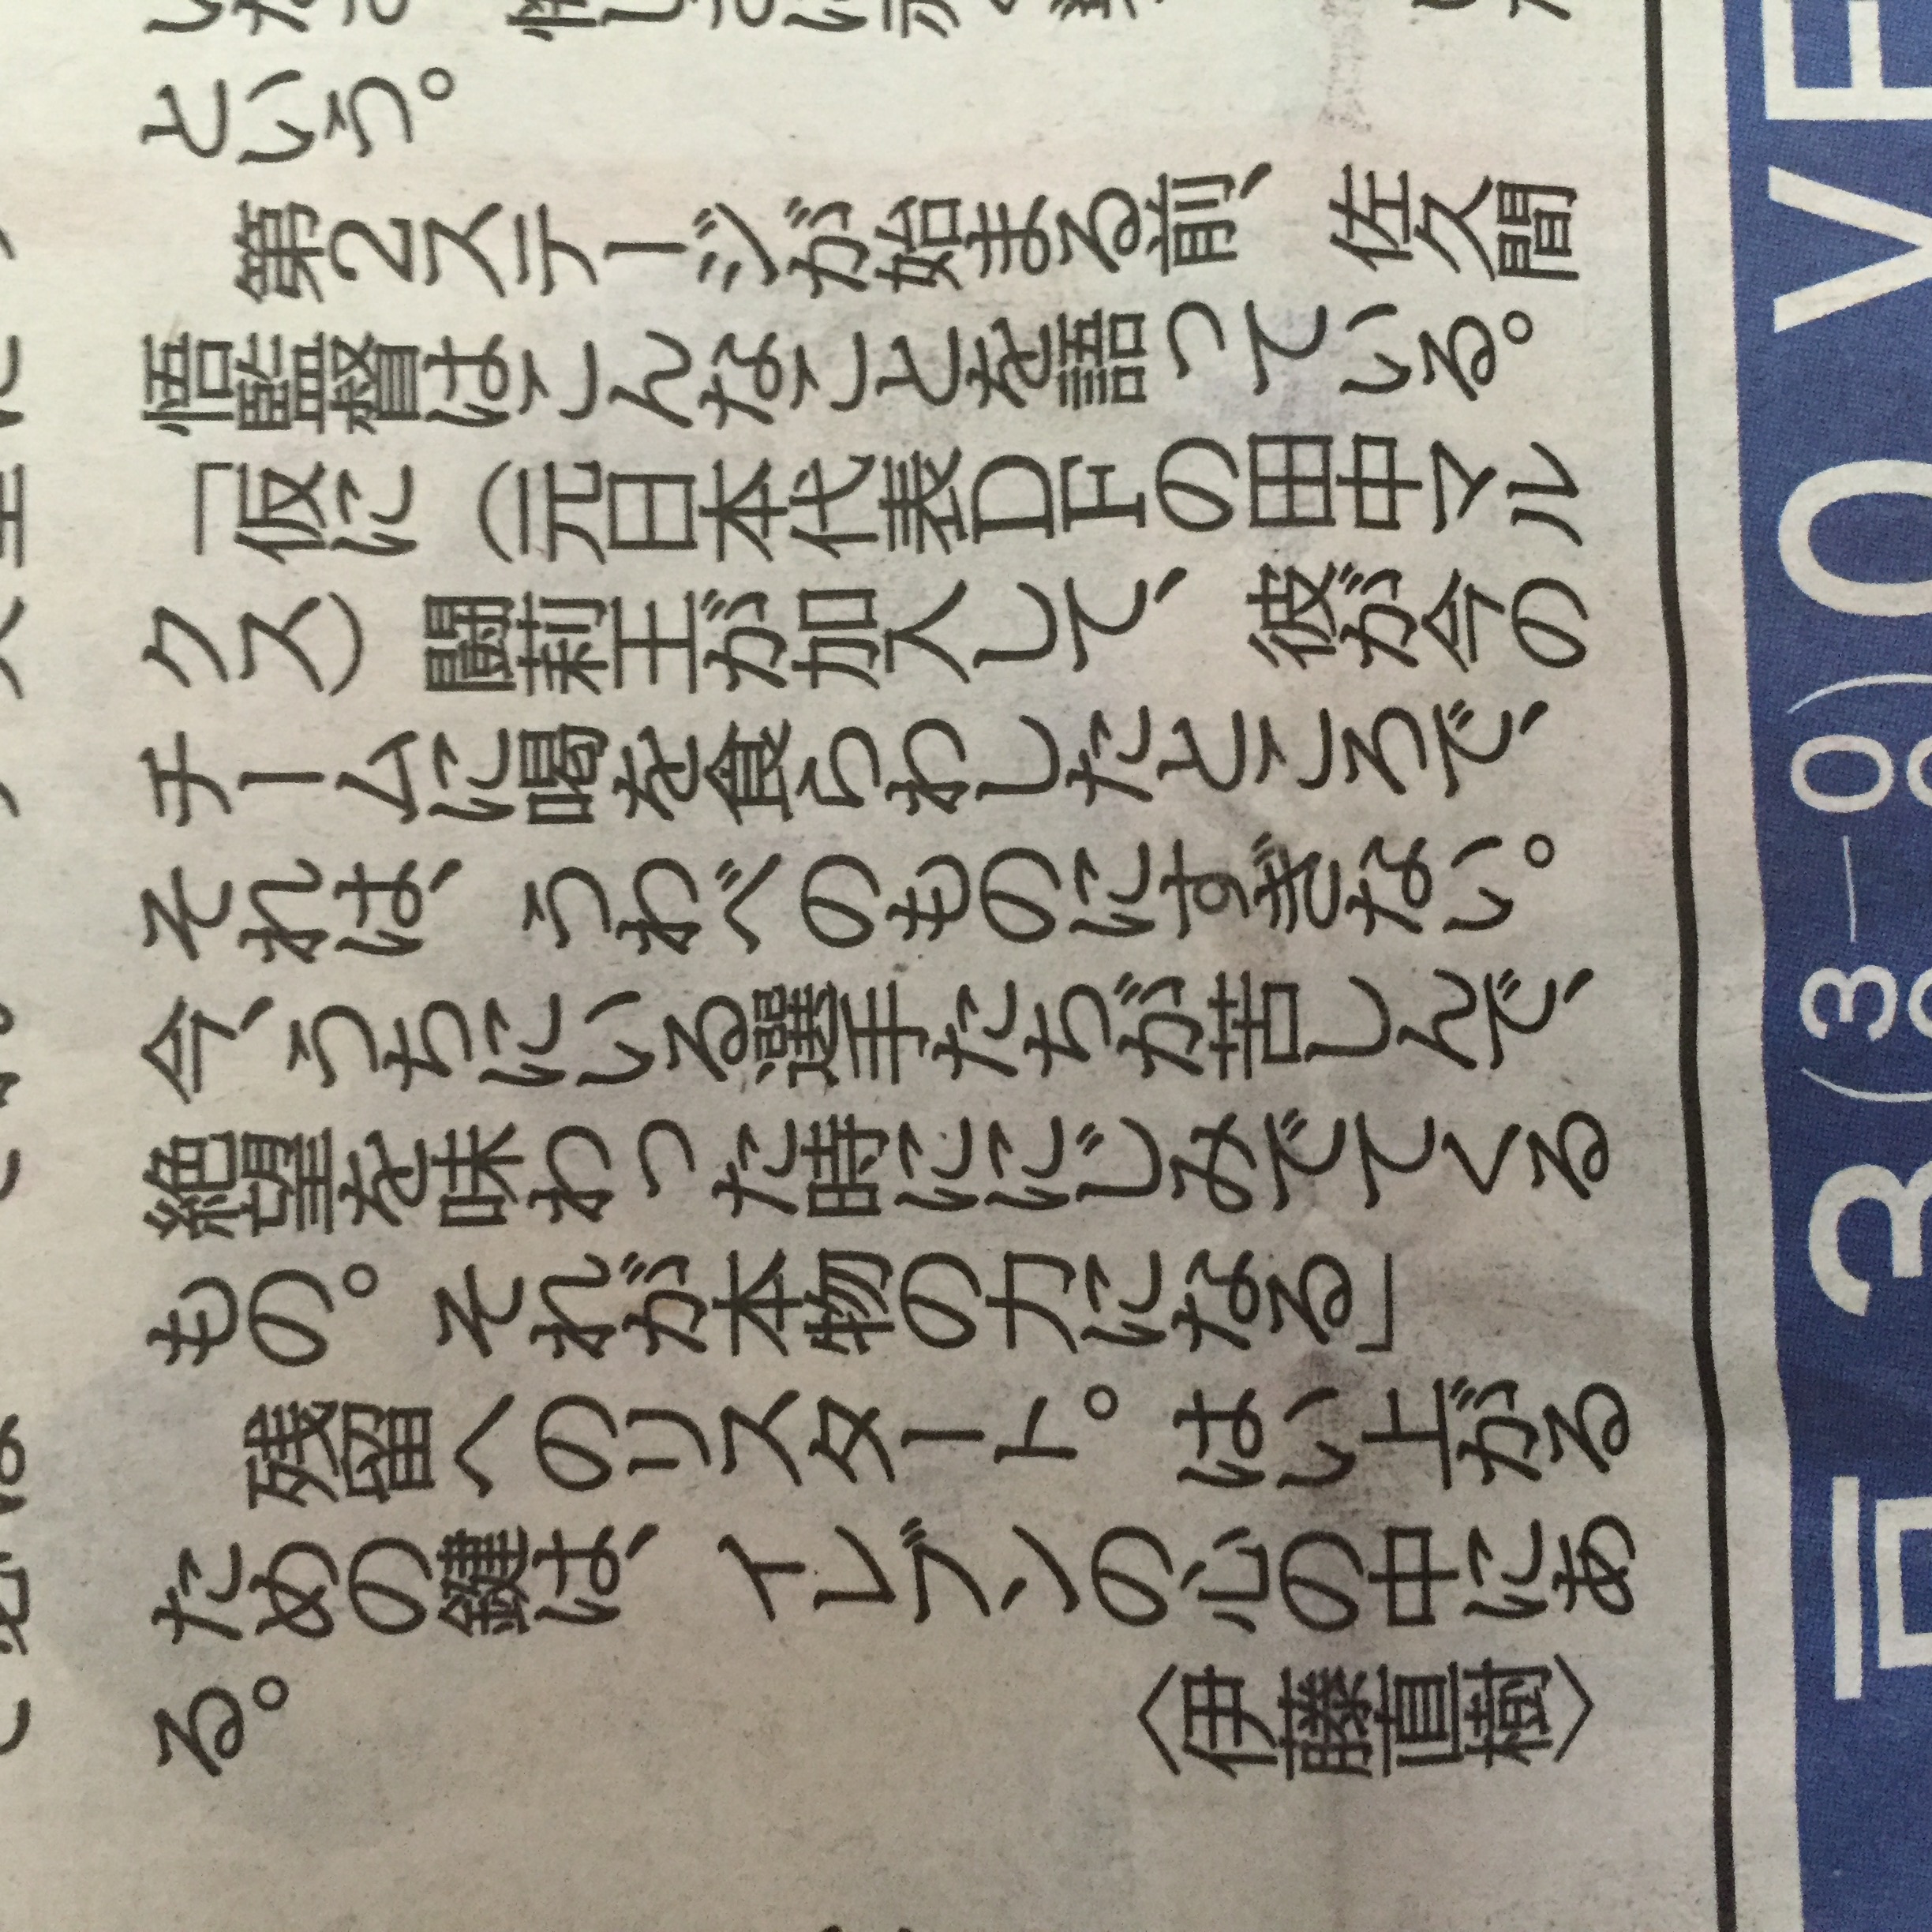 という。
第2ステージが始まる前、佐久間
悟監督はこんなことを語っている。
「仮に（元日本代表DFの田中マル
クス）闘莉王が加入して、彼が今の
チームに喝を食らわしたところで、
それは、うわべのものにすぎない。
今、うちにいる選手たちが苦しんで、
絶望を味わった時ににじみでてくる
もの。それが本物の力になる」
残留へのリスタート。はい上がる
ための鍵は、イレブンの心の中にあ
る。
〈伊藤直樹〉
3(3―0)0 VE